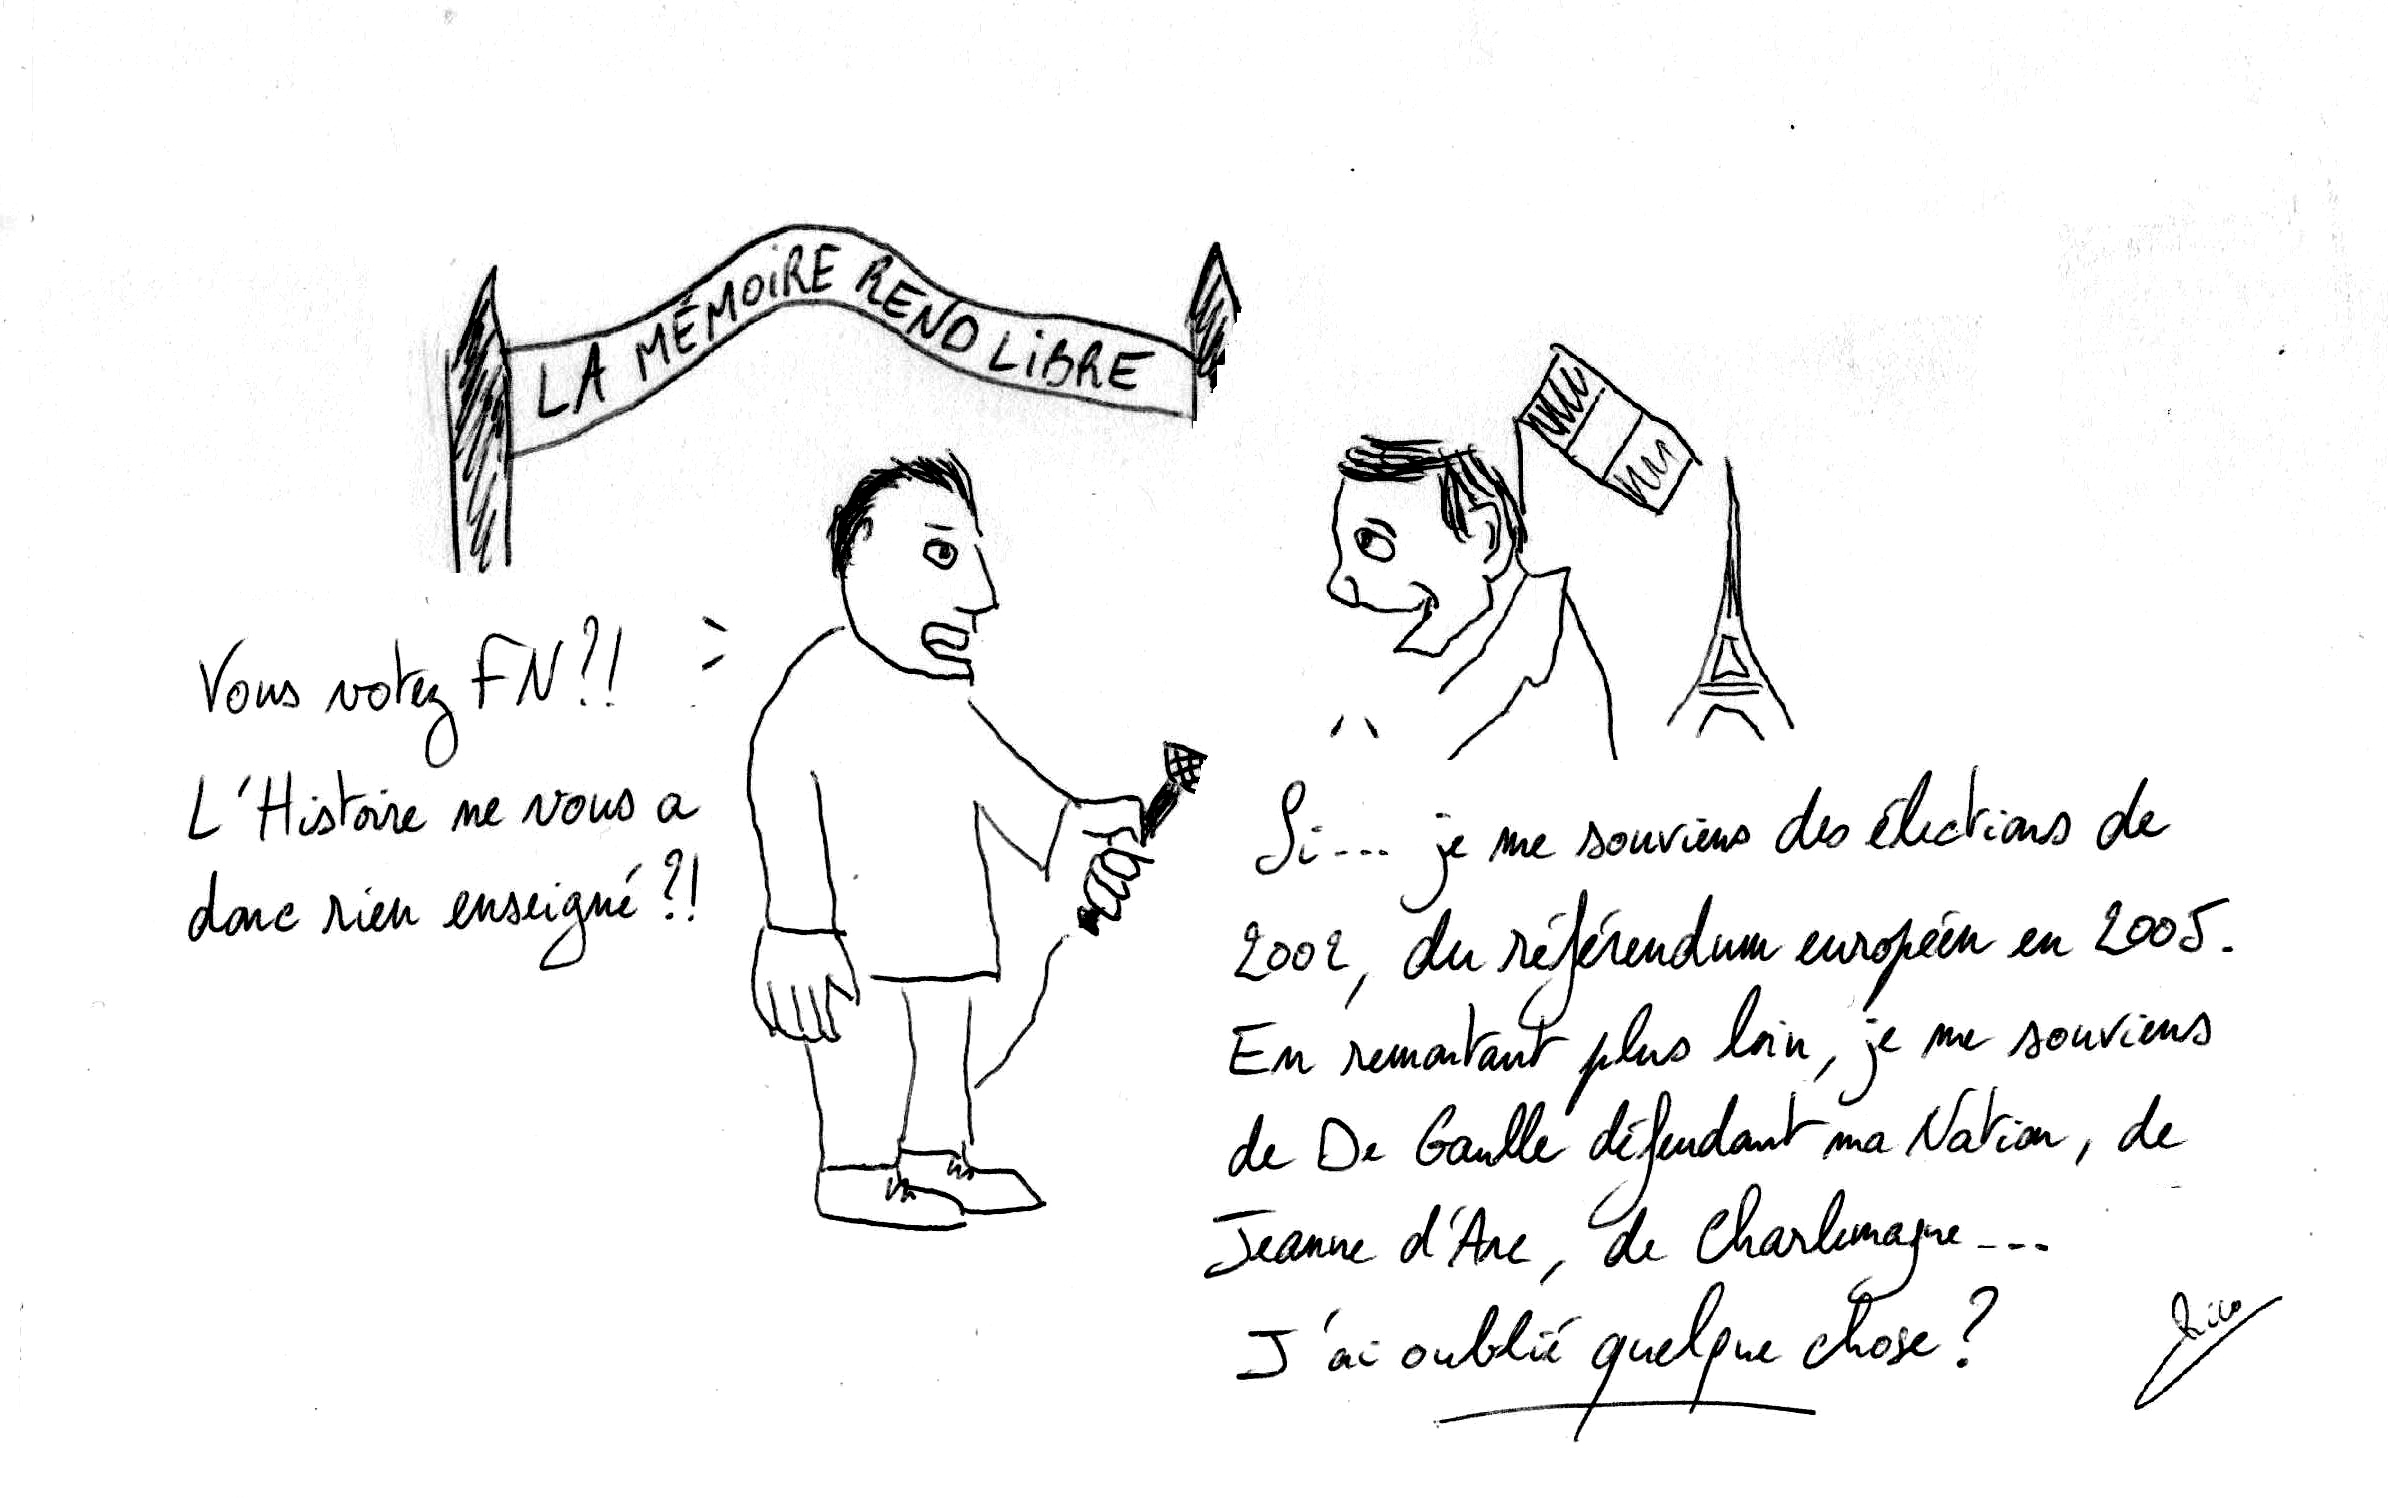 LA MÉMOIRE REND LIBRE
Vous votez FN?!
L'Histoire ne vous a
donc rien enseigné?!
Si... je me souviens des élections de
2002, du référendum européen en 2005.
En remontant plus loin, je me souviens
de De Gaulle défendant ma Nation, de
Jeanne d'Arc, de Charlemagne...
J'ai oublié quelque chose?